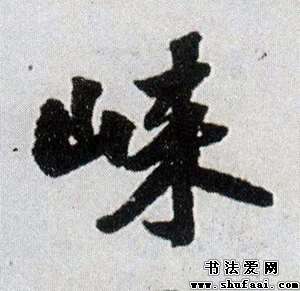 崃
书法爱网
www.shufaai.com